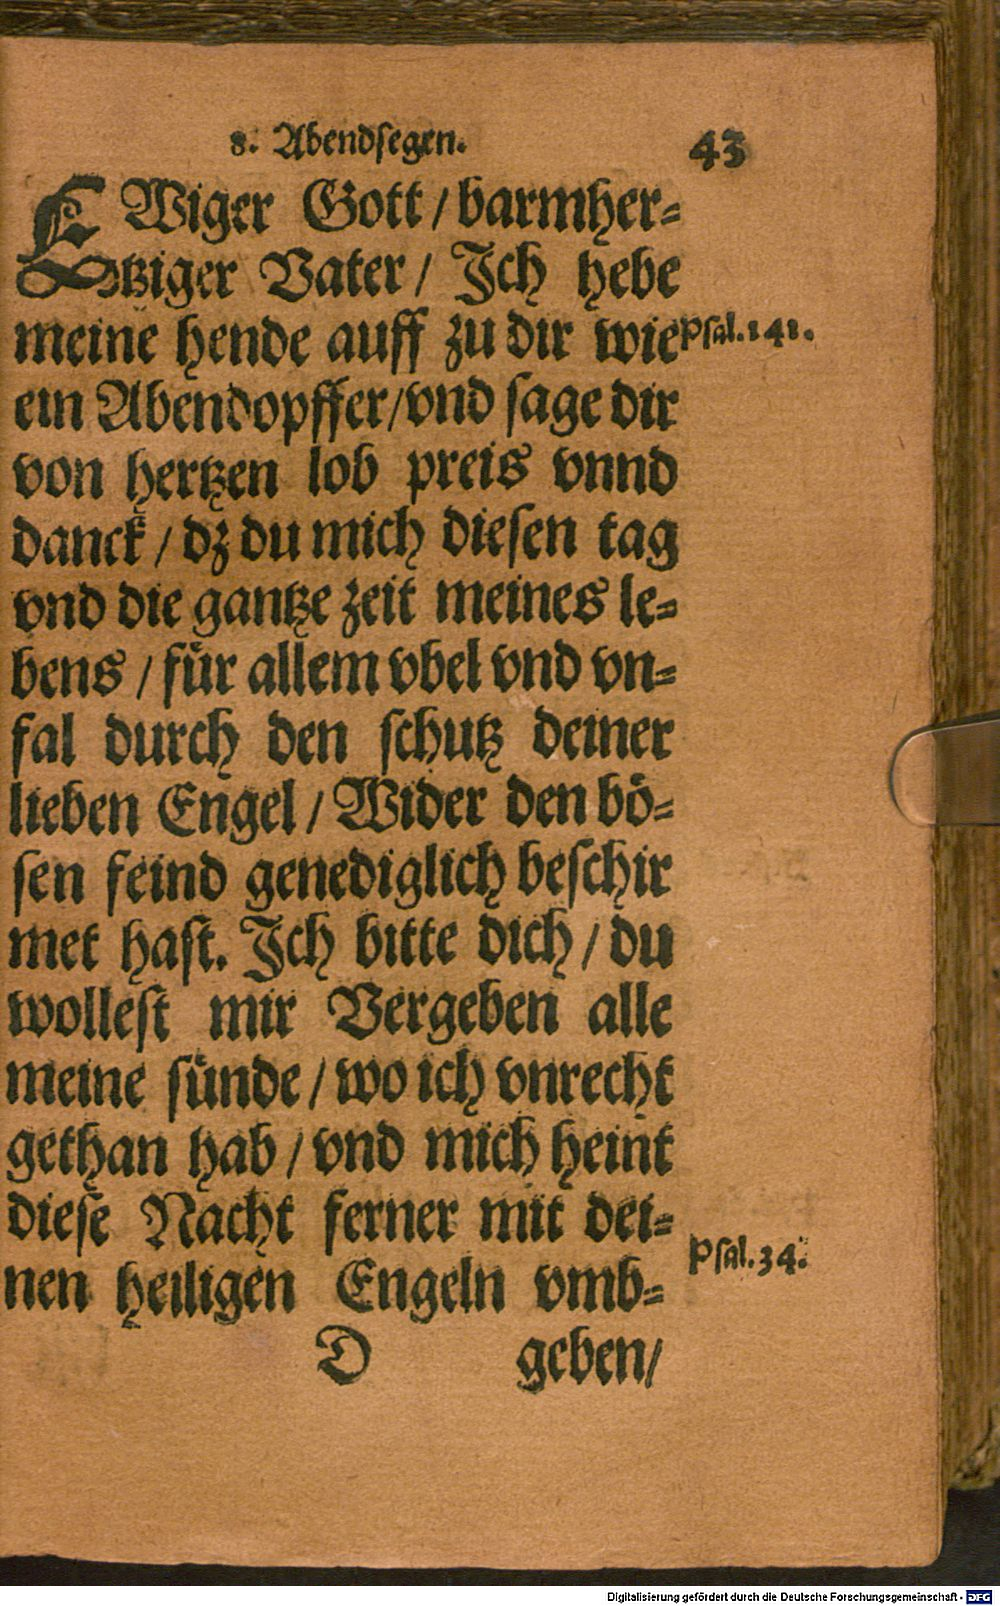 8. Abendsegen. 43
EWiger Gott / barmher⸗
tziger Vater / Ich hebe
meine hende auff zu dir wie Psal. 141.
ein Abendopffer / vnd sage dir
von hertzen lob preis vnnd
danck / dz du mich diesen tag
vnd die gantze zeit meines le⸗
bens / für allem vbel vnd vn⸗
fal durch den schutz deiner
lieben Engel / Wider den bö⸗
sen feind genediglich beschir
met hast. Ich bitte dich / du
wollest mir Vergeben alle
meine sünde / wo ich vnrecht
gethan hab / vnd mich heint
diese Nacht ferner mit dei⸗
nen heiligen Engeln vmb⸗ Psal. 34.
D geben /
Digitalisierung gefördert durch die Deutsche Forschungsgemeinschaft - DFG